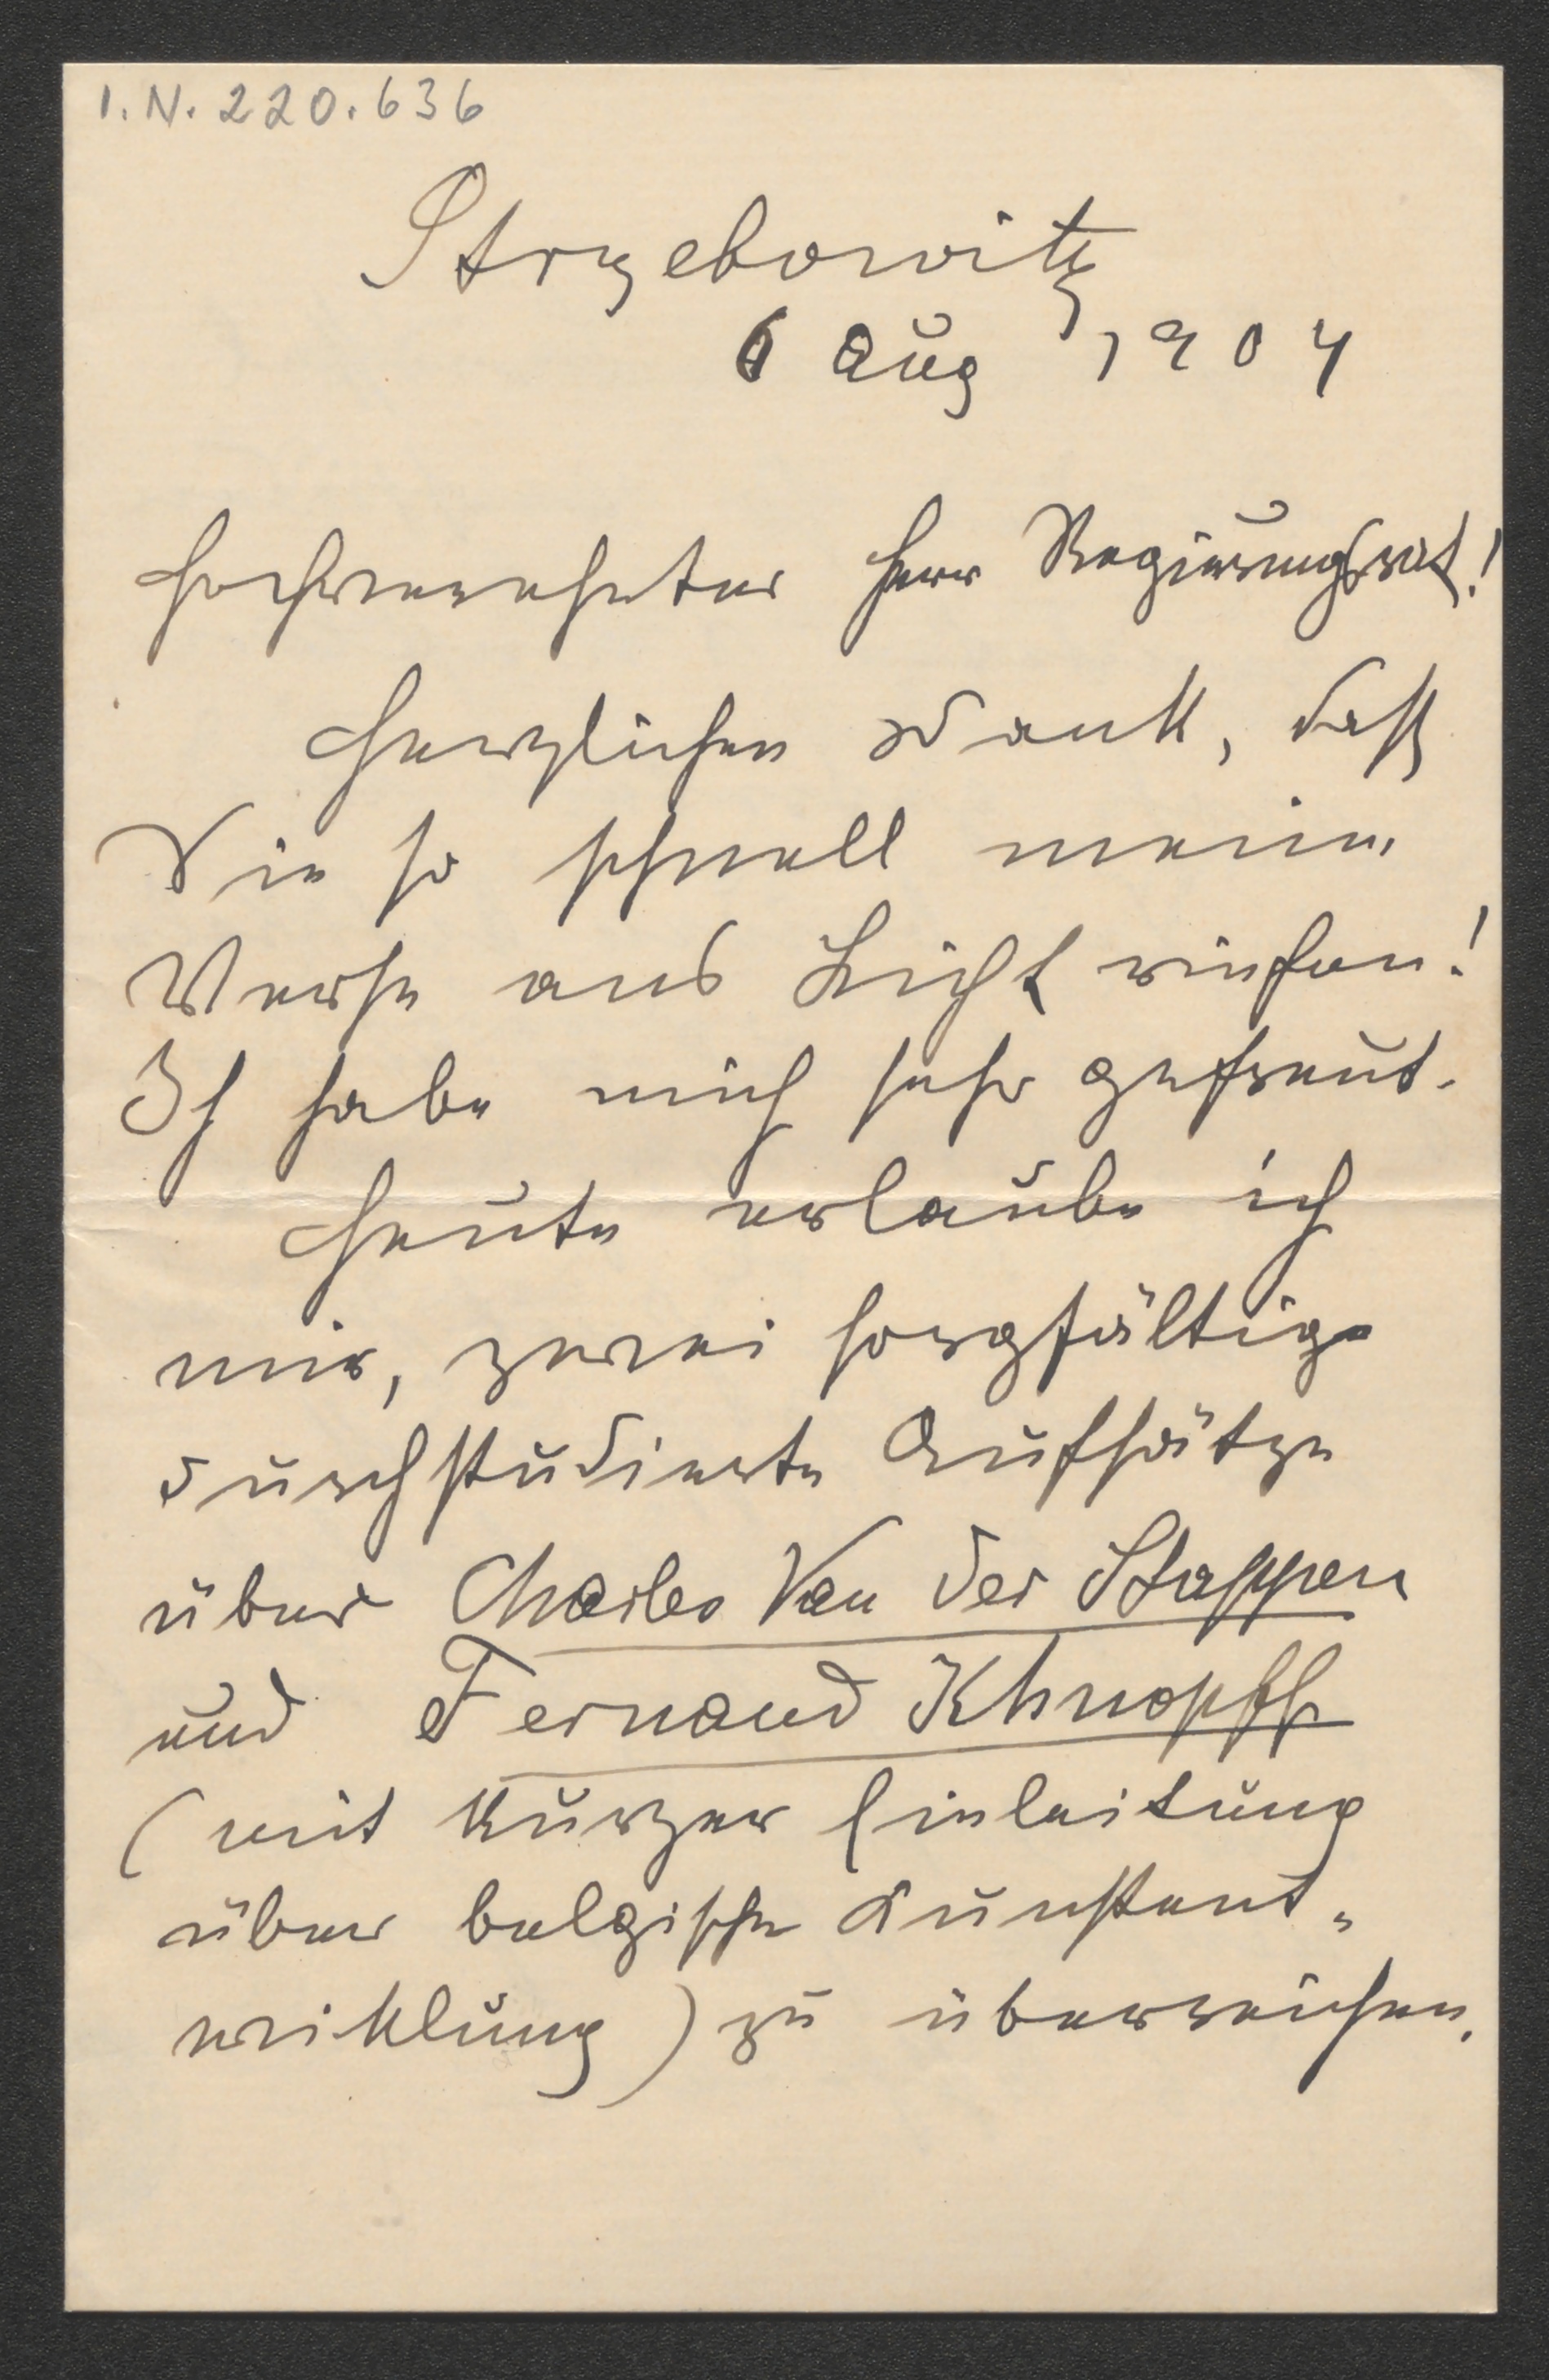 I.N. 220.636
Strzebowitz
6 Aug 1904
Hochverehrter Herr Regierungsrat!
Herzlichen Dank, daß
Sie so schnell meine
Verse ans Licht riefen!
Ich habe mich sehr gefreut.
Heute erlaube ich
mir, zwei sorgfältig
durchstudierte Aufsätze
über Charles Van der Stappen
und Fernand Khnopff
(mit kurzer Einleitung
über belgische Kunstent-
wicklung) zu überreichen.